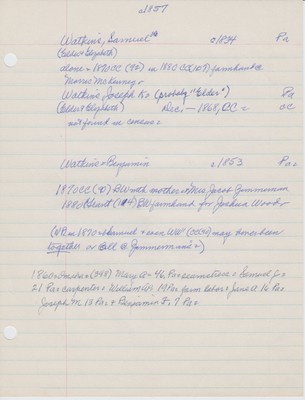 c1857
Watkins, Samuel c1834 Pa
(Elder & Elizabeth)
alone = 1870 CC (92) = 1880 CC (107) farmhand @
Morris McKinney's
Watkins Joseph K. (probably "Elder") Pa
(Elder & Elizabeth) Dec. — 1868, CC = CC
not found in census =
Watkins Benjamin c1853 Pa
1870 CC (70) DW with mother = Mrs. Jacob Zimmerman
1880 Grant (114) DW farmhand for Joshua Wood
(NB in 1870 = Samuel & even may have been
together or @ Zimmerman's =)
1860 = (098) Mary A = 46 Pa = seamstress = Samuel J. =
21 Pa = carpenter = William 19 Pa = farm labor = Jane A 16 Pa =
Joseph M 13 Pa = & Benjamin F. 7 Pa =